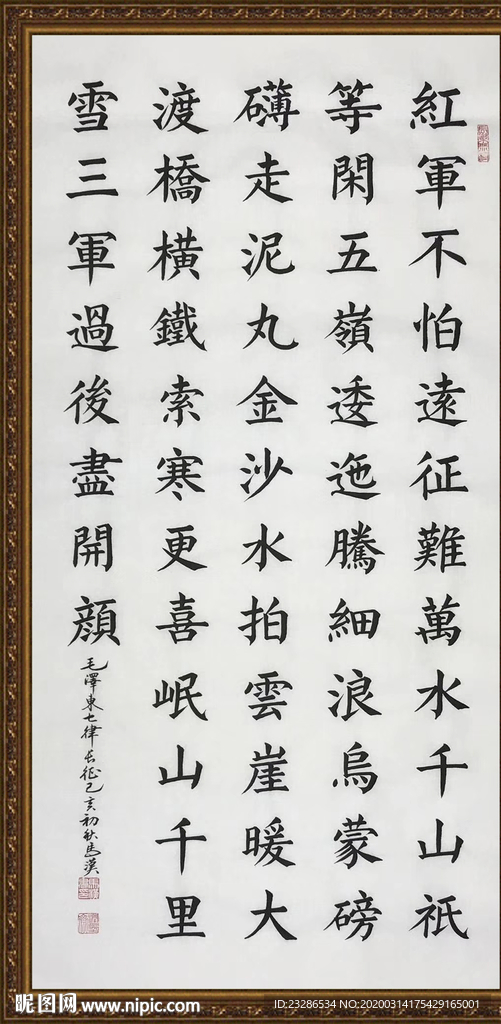 紅軍不怕遠征難萬水千山祇
等閑五嶺逶迤騰細浪烏蒙磅
礴走泥丸金沙水拍雲崖暖大
渡橋橫鐵索寒更喜岷山千里
雪三軍過後盡開顏
毛澤東七律長征己亥初秋馬漢
昵图网 www.nipic.com
ID:23286534 NO:20200314175429165001